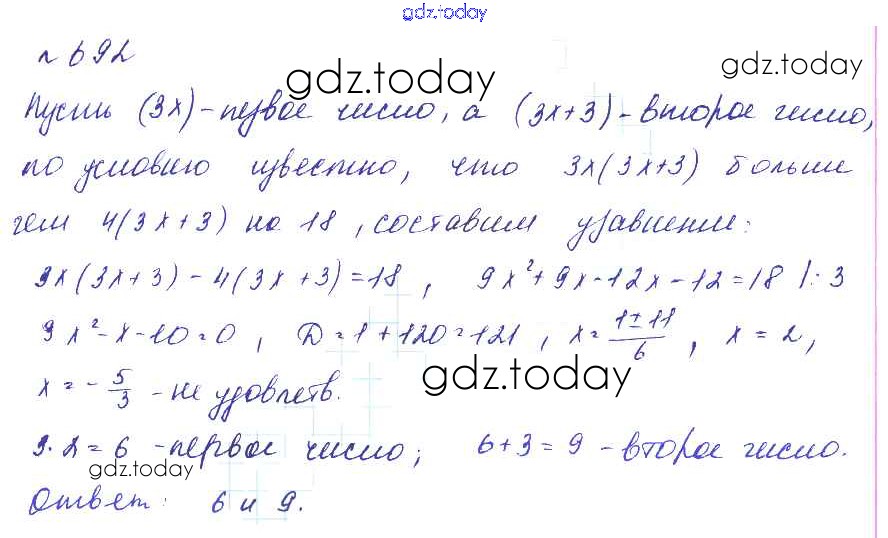 gdz.today
n 692
gdz.today
gdz.today
Пусть (3x) - первое число, а (3x+3) - второе число,
по условию известно, что 3x(3x+3) больше
чем 4(3x+3) на 18, составим уравнение:
3x(3x+3) - 4(3x+3) = 18, 9x²+9x-12x-12=18 |:3
3x²-x-10=0, D=1+120=121, x= 1±11/6, x=2,
gdz.today
x=-5/3 - не удовлетв.
3·2=6 - первое число; 6+3=9 - второе число.
gdz.today
Ответ: 6 и 9.